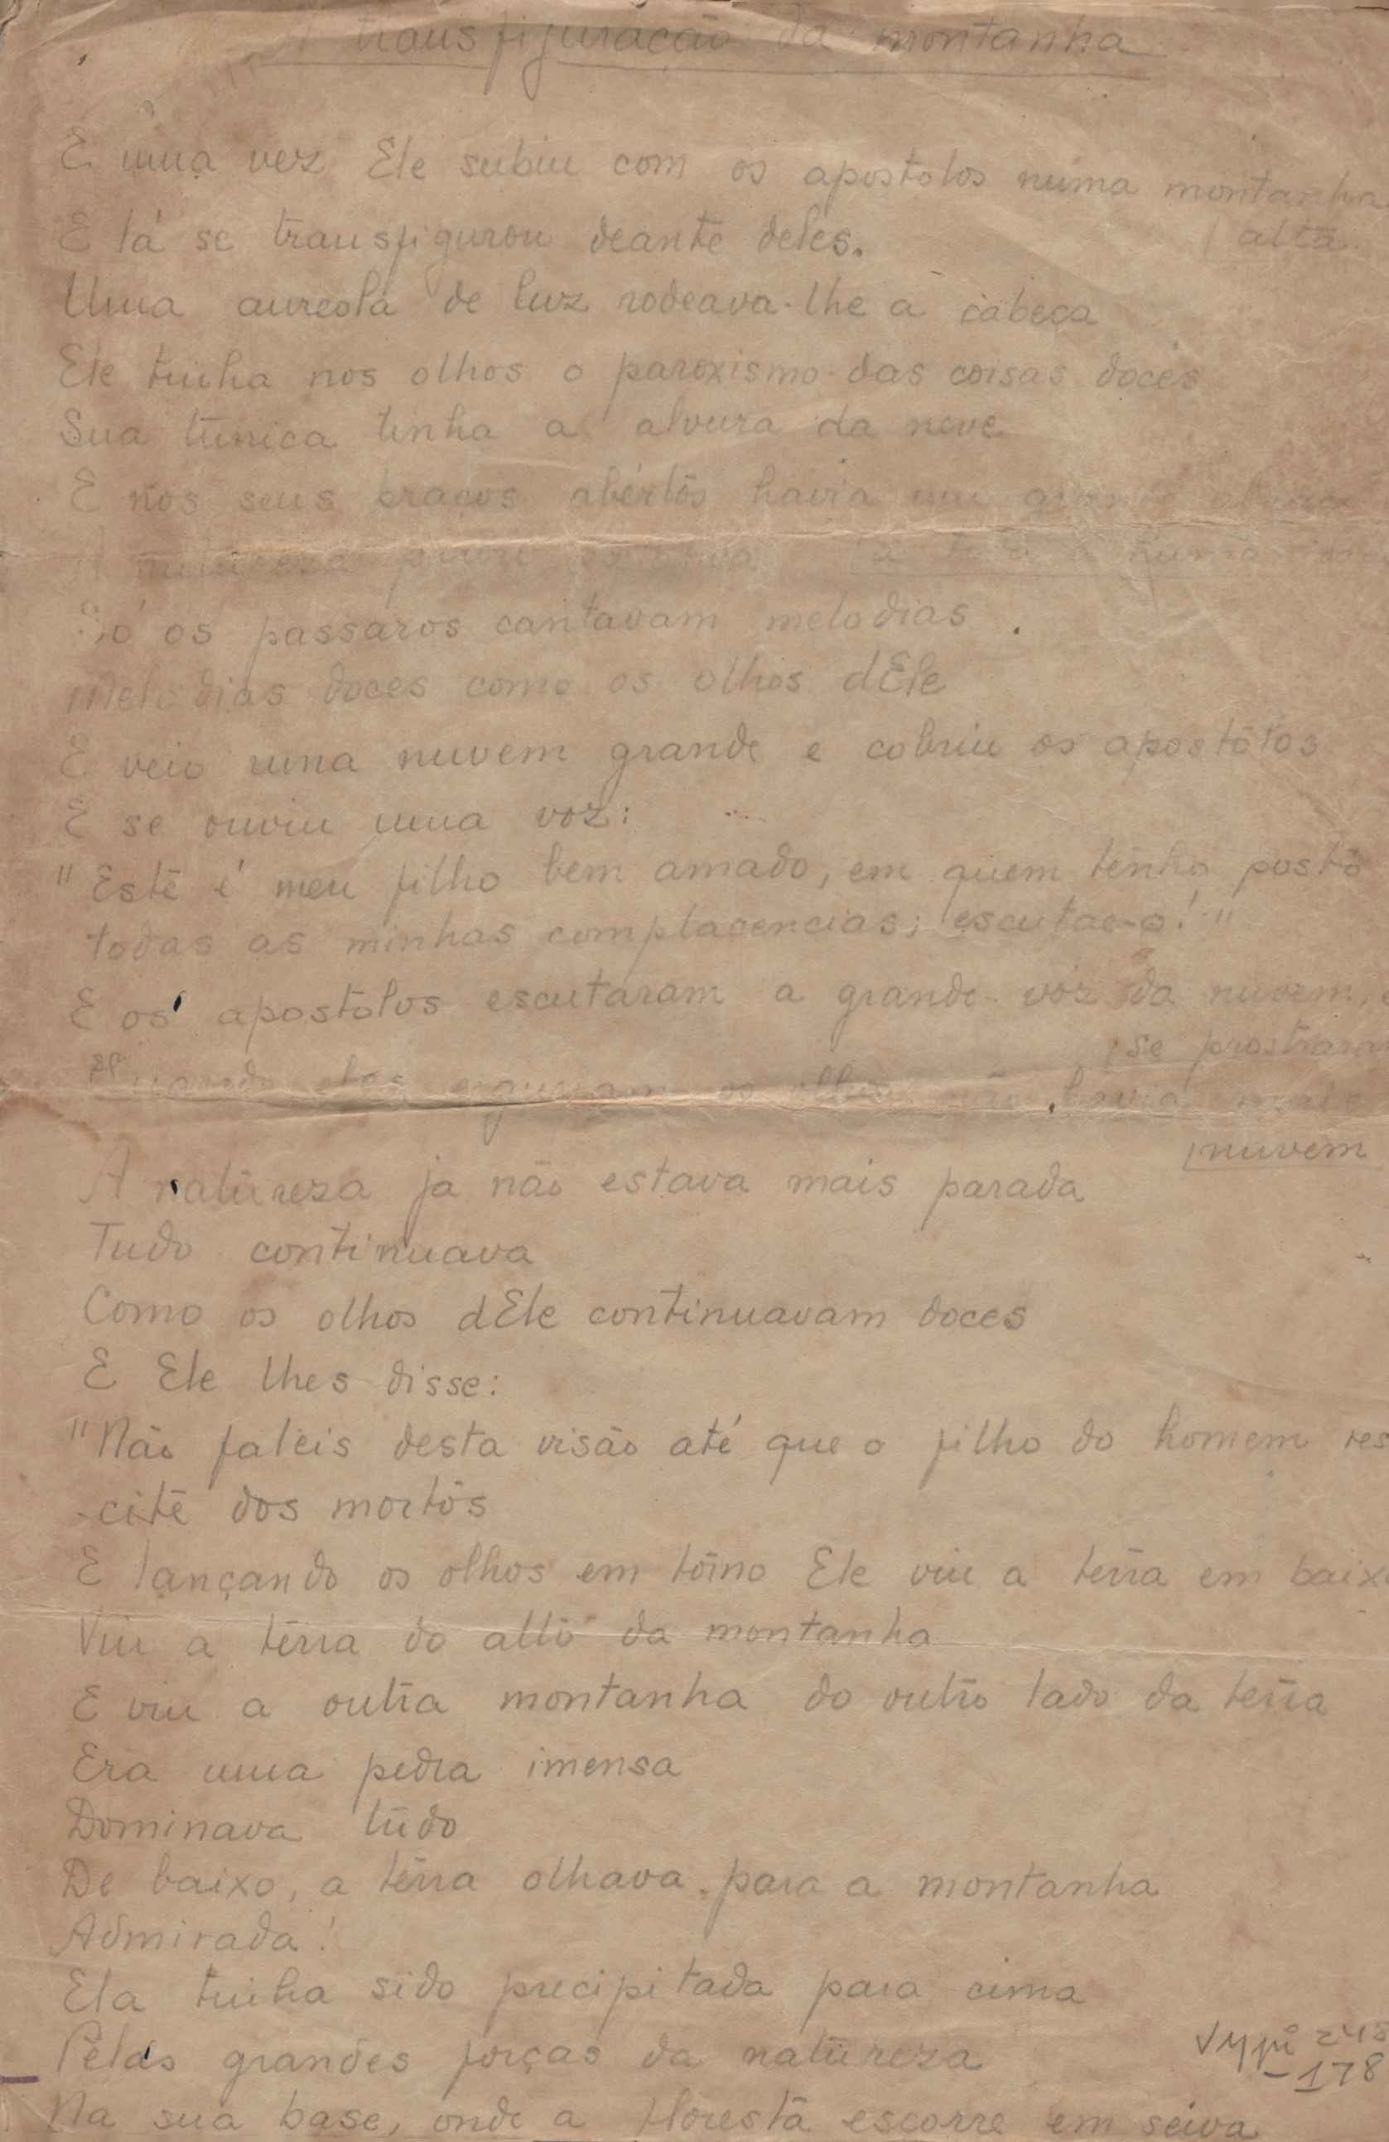 A transfiguração da montanha
E uma vez Ele subiu com os apostolos numa montanha
alta.
E lá se transfigurou deante deles.
Uma aureola de luz rodeava-lhe a cabeça
Ele tinha nos olhos o paroxismo das coisas doces
Sua tunica tinha a alvura da neve
E nos seus braços abertos havia um grande
A natureza
Só os passaros cantavam melodias.
Melodias doces como os olhos dEle
E veio uma nuvem grande e cobriu os apostolos
E se ouviu uma voz:
"Este é meu filho bem amado, em quem tenho posto
todas as minhas complacencias; escutae-o!"
E os apostolos escutaram a grande voz da nuvem, e
se prostraram
Quando eles ergueram os olhos não havia mais
nuvem
A natureza ja não estava mais parada
Tudo continuava
Como os olhos dEle continuavam doces
E Ele lhes disse:
"Não faleis desta visão até que o filho do homem res
-cite dos mortos
E lançando os olhos em torno Ele viu a terra em baixo
Viu a terra do alto da montanha
E viu a outra montanha do outro lado da terra
Era uma pedra imensa
Dominava tudo
De baixo, a terra olhava para a montanha
Admirada!
Ela tinha sido precipitada para cima
Pelas grandes forças da natureza
Na sua base, onde a floresta escorre em seiva
-178